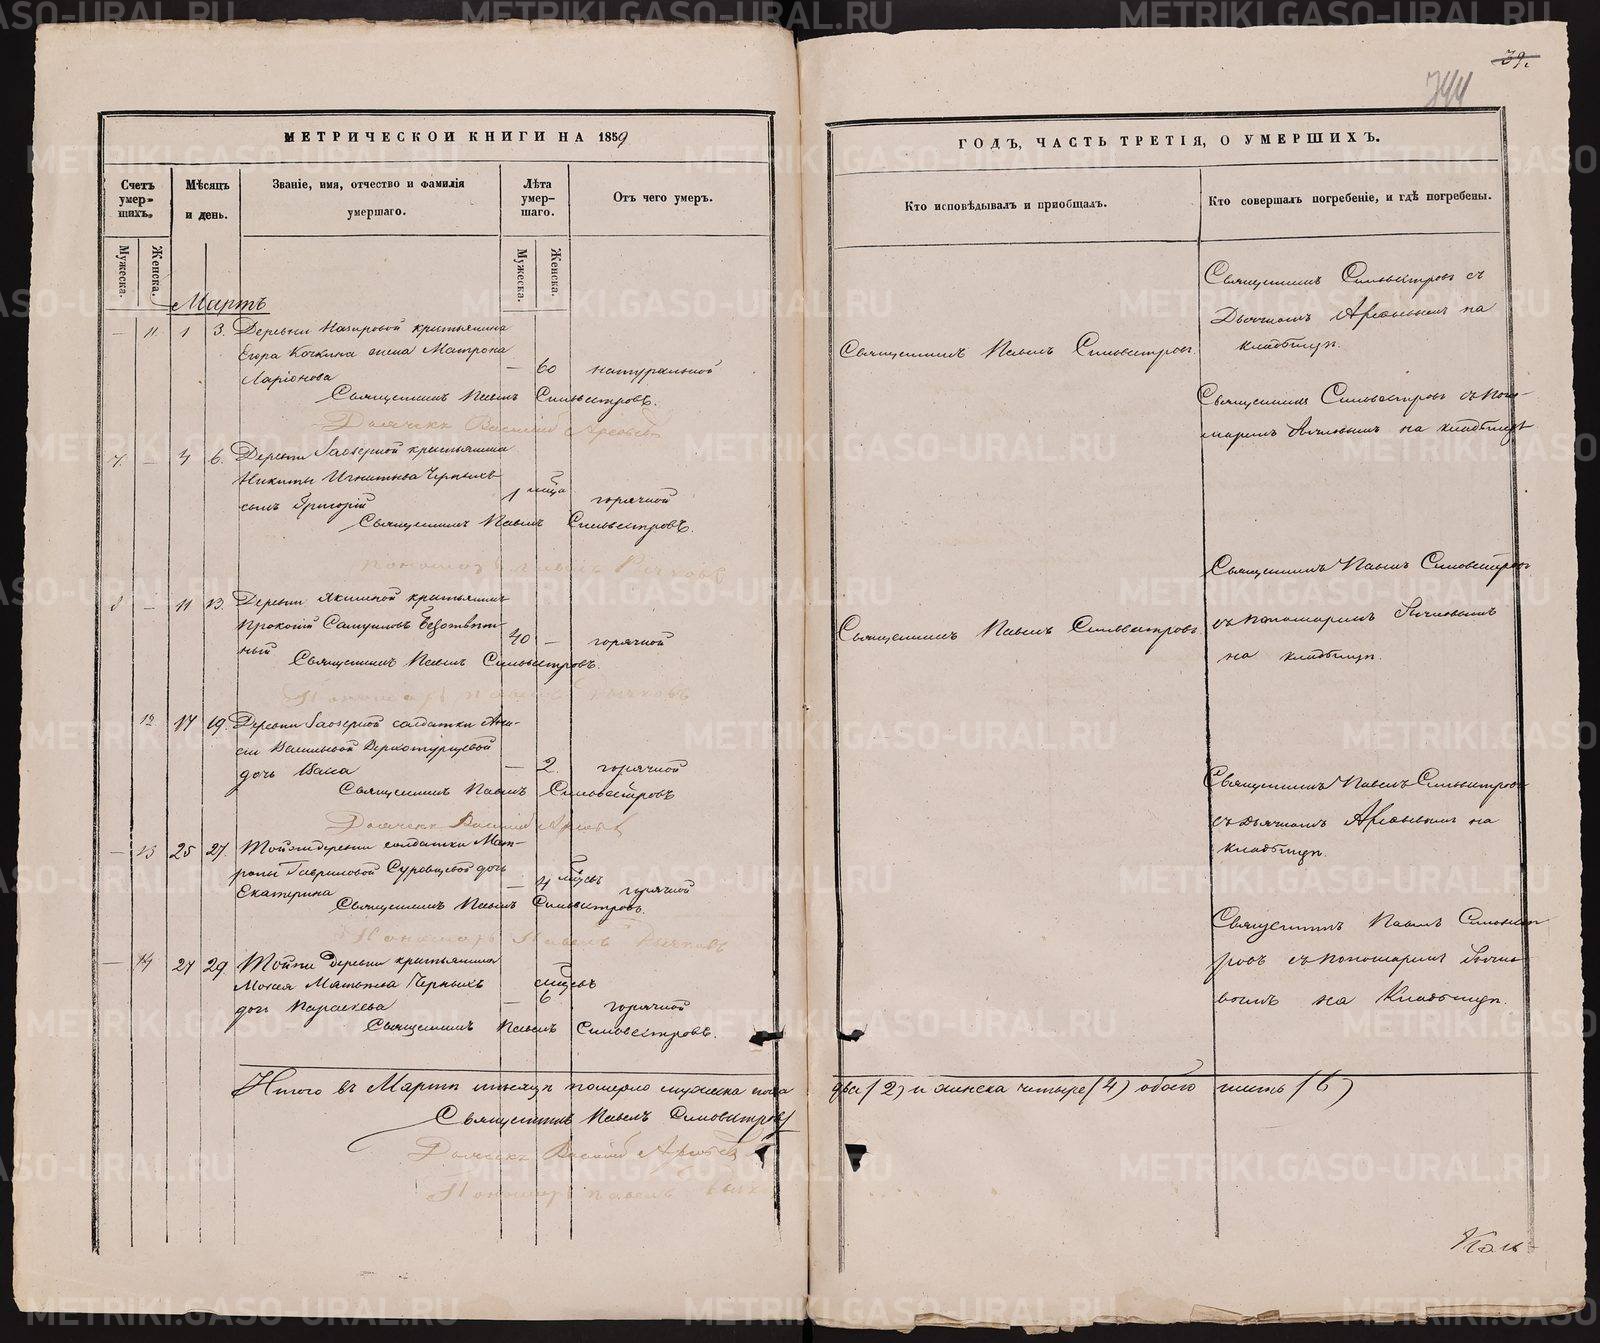 МЕТРИЧЕСКОИ КНИГИ НА 1859
Счетъ умер-шихъ.
Мѣсяцъ и день.
Званіе, имя, отчество и фамилія умершаго.
Лѣта умер-шаго.
Отъ чего умеръ.
Мужеска.
Женска.
Мужеска.
Женска.
Мартъ
— 11. 1 3. Деревни Назаровой крестьянина
Егора Кочкина жена Матрона
Ларіонова — 60 натуральной
Священникъ Павелъ Сильвестровъ.
Дьячекъ Василій Арефьевъ
7. — 4 6. Деревни Заозерной крестьянина
Никиты Игнатьева Черныхъ
сынъ Григорій 1 мѣца горячкой
Священникъ Павелъ Сильвестровъ.
Пономарь Павелъ
8 — 11 13. Деревни Якшиной крестьянинъ
Прокопій Самуиловъ
ный 40 — горячкой
Священникъ Павелъ Сильвестровъ.
Пономарь Павелъ
12 17 19. Деревни Заозерной солдатки Ани-
сіи Васильевой Верхотурцевой
дочь — 2. горячкой
Священникъ Павелъ Сильвестровъ
Дьячекъ Василій Арефьев
— 13 25 27. Той же деревни солдатки Мат-
роны Гавриловой Суровцевой дочь
Екатерина — 4 мѣцевъ горячкой
Священникъ Павелъ Сильвестровъ.
Пономарь Павелъ
— 14 27 29. Той же деревни крестьянина
Мокея Матвѣева Черныхъ мѣцевъ
дочь Параскева — 6 горячкой
Священникъ Павелъ Сильвестровъ.
Итого въ Мартѣ мѣсяцѣ померло мужеска пола
Священникъ Павелъ Сильвестровъ
Дьячекъ Василій Арефьевъ
Пономарь Павелъ
39.
744
ГОДЪ, ЧАСТЬ ТРЕТІЯ, О УМЕРШИХЪ.
Кто исповѣдывалъ и пріобщалъ.
Кто совершалъ погребеніе, и гдѣ погребены.
Священникъ Сильвестровъ съ
Дьячкомъ Арефьевымъ на
кладбищѣ.
Священникъ Павелъ Сильвестровъ.
Священникъ Сильвестровъ съ Поно-
маремъ на кладбищѣ
Священникъ Павелъ Сильвестровъ
съ пономаремъ
на кладбищѣ.
Священникъ Павелъ Сильвестровъ
Священникъ Павелъ Сильвестровъ
съ Дьячкомъ Арефьевымъ на
кладбищѣ.
Священникъ Павелъ Сильвест-
ровъ съ пономаремъ
вымъ на Кладбищѣ.
два (2) и женска четыре (4) обоего шесть (6)